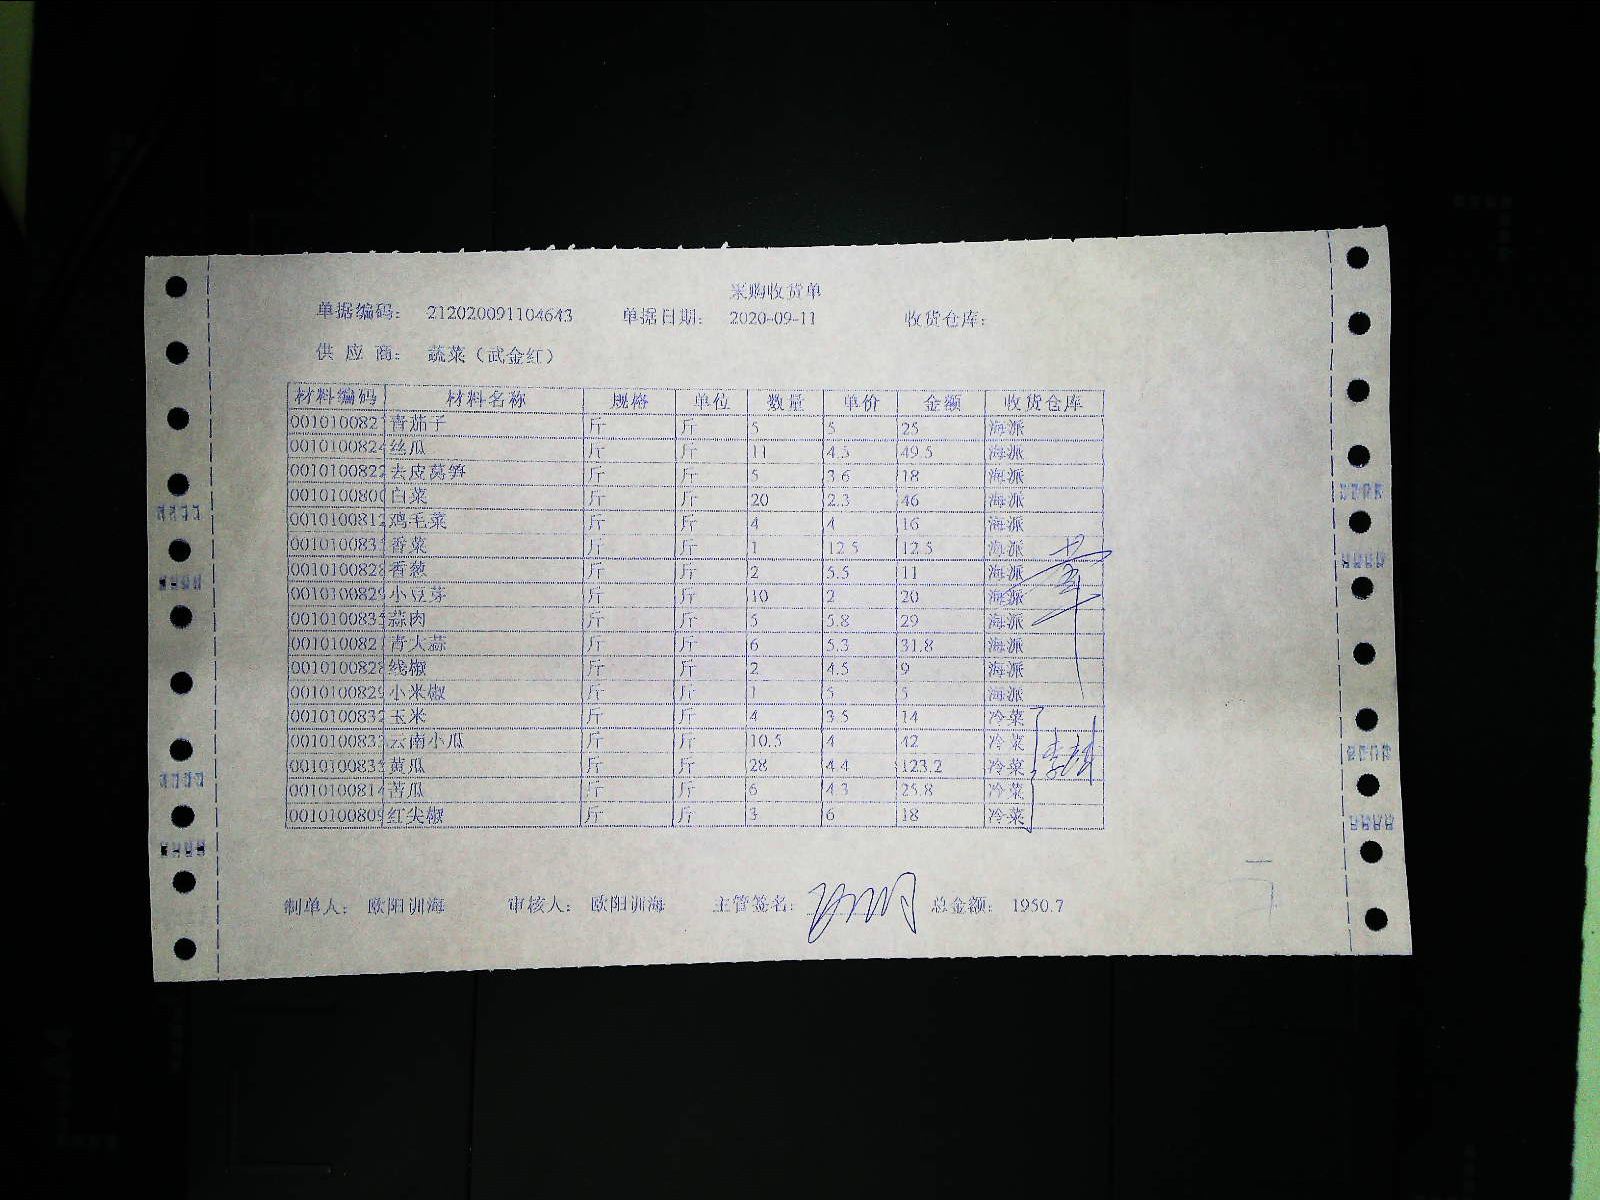 采购收货单
单据编码: 212020091104643 单据日期: 2020-09-11 收货仓库:
供 应 商: 蔬菜（武金红）
材料编码 材料名称 规格 单位 数量 单价 金额 收货仓库
001010082 青茄子 斤 斤 5 5 25 海派
0010100824 丝瓜 斤 斤 11 4.5 49.5 海派
0010100822 去皮莴笋 斤 斤 5 3.6 18 海派
0010100800 白菜 斤 斤 20 2.3 46 海派
0010100812 鸡毛菜 斤 斤 4 4 16 海派
001010083 香菜 斤 斤 1 12.5 12.5 海派
0010100828 香葱 斤 斤 2 5.5 11 海派
0010100829 小豆芽 斤 斤 10 2 20 海派
001010083 蒜肉 斤 斤 5 5.8 29 海派
001010082 青大蒜 斤 斤 6 5.3 31.8 海派
0010100828 线椒 斤 斤 2 4.5 9 海派
0010100829 小米椒 斤 斤 1 5 5 海派
0010100832 玉米 斤 斤 4 3.5 14 冷菜
001010083 云南小瓜 斤 斤 10.5 4 42 冷菜
001010083 黄瓜 斤 斤 28 4.4 123.2 冷菜
0010100814 苦瓜 斤 斤 6 4.3 25.8 冷菜
0010100809 红尖椒 斤 斤 3 6 18 冷菜
制单人: 欧阳训海 审核人: 欧阳训海 主管签名: 总金额: 1950.7